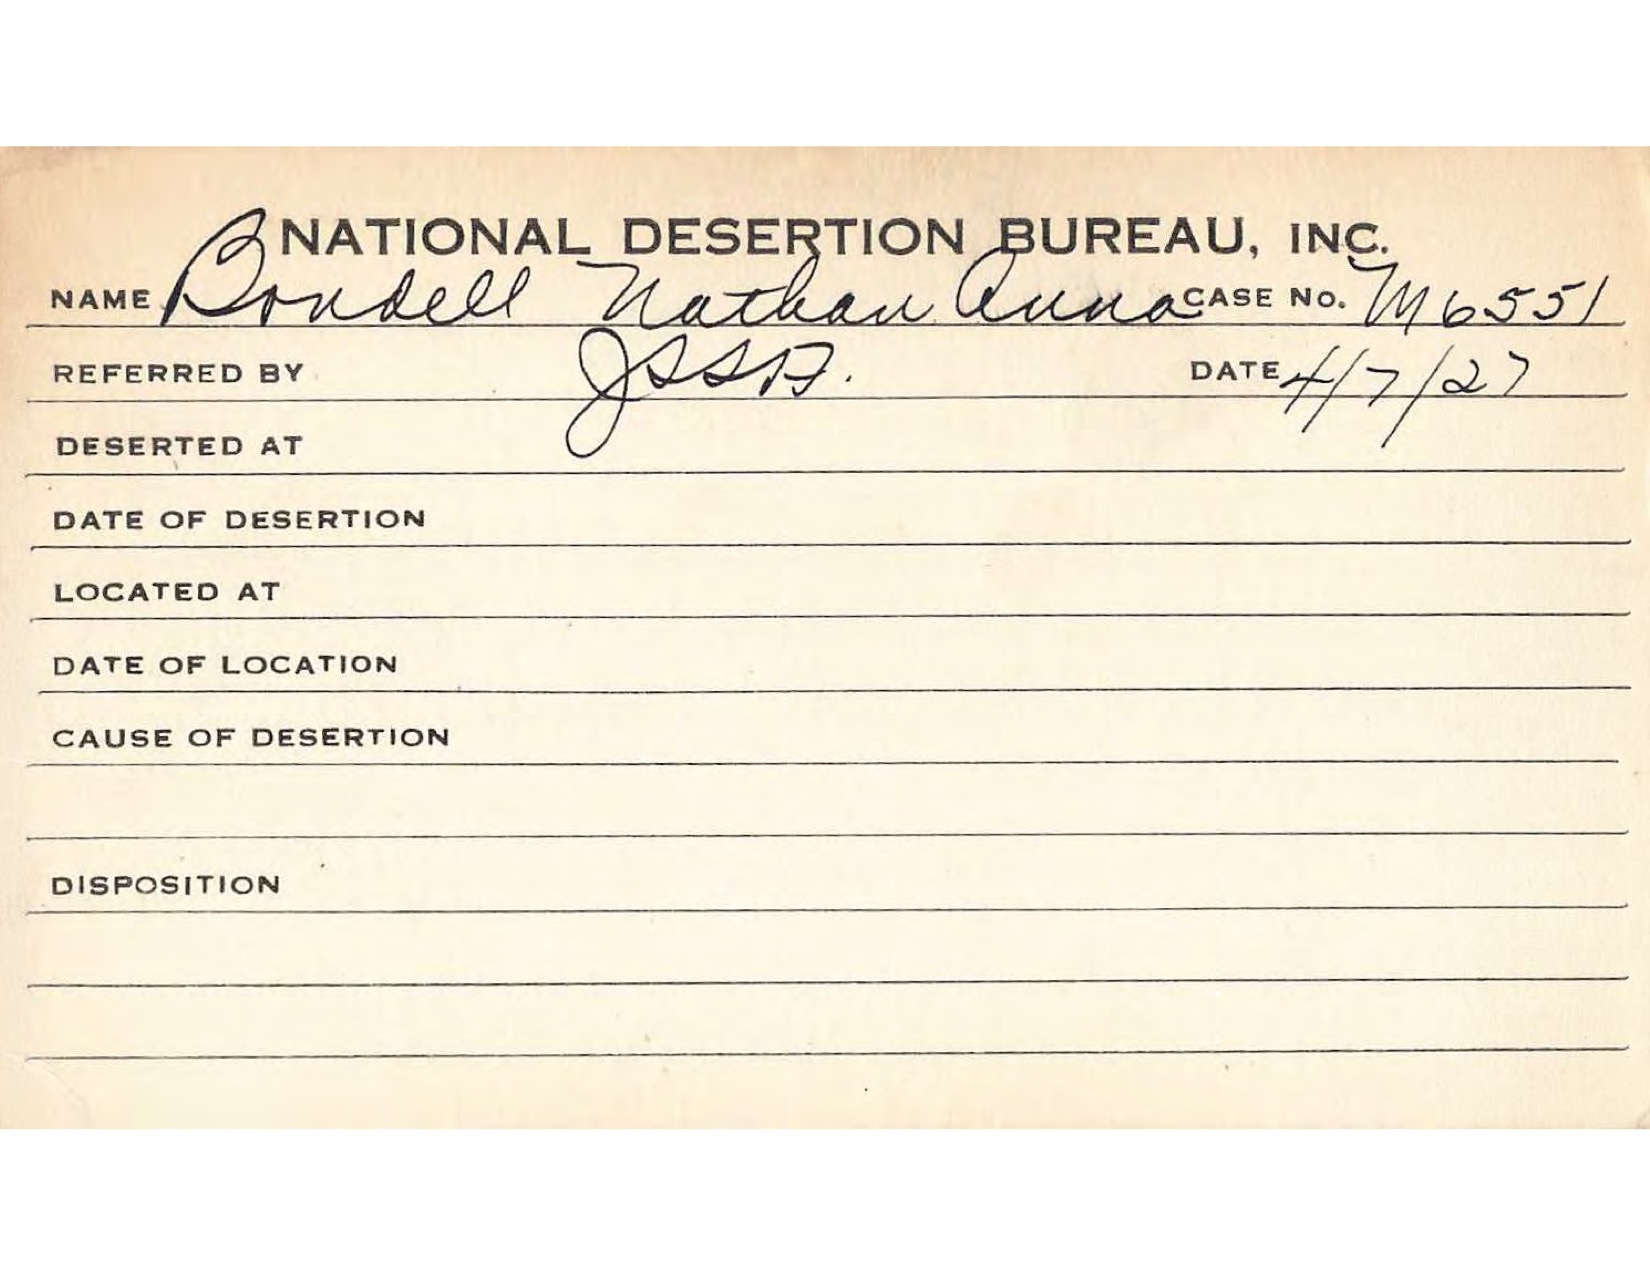 NATIONAL DESERTION BUREAU, INC.
NAME Bondell Nathan Anna CASE No. M6551
REFERRED BY JSSA. DATE 4/7/27
DESERTED AT
DATE OF DESERTION
LOCATED AT
DATE OF LOCATION
CAUSE OF DESERTION
DISPOSITION